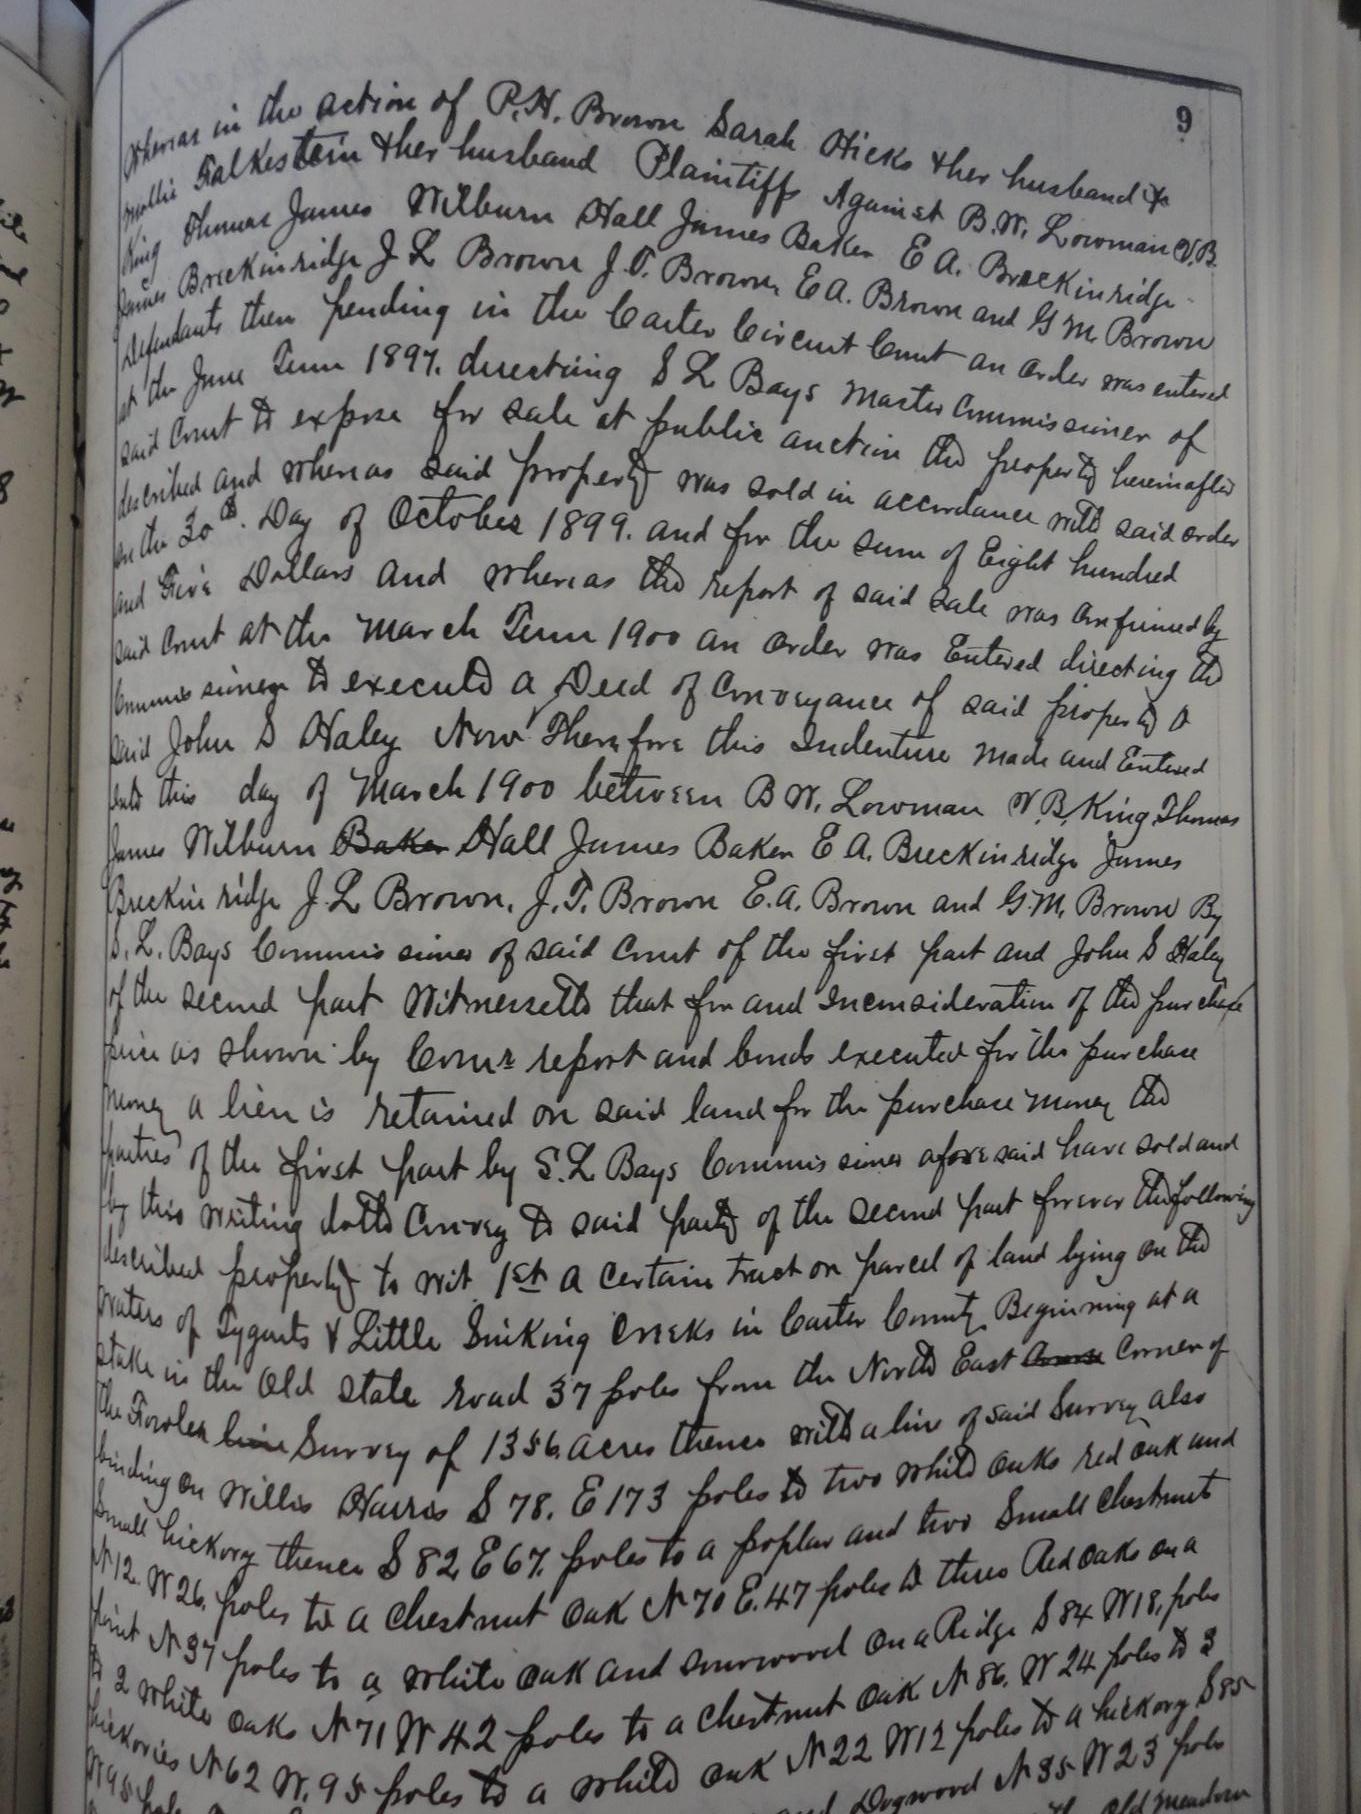 9
Whereas in the action of P.H. Brown Sarah Hicks & her husband &
Mollie Falkestein & her husband Plaintiffs Against B.W. Lowman V.B.
King Thomas James Wilburn Hall James Baker E A. Breckinridge
James Breckinridge J L Brown J.T. Brown, E A. Brown and G M. Brown
Defendants then pending in the Carter Circuit Court an order was entered
at the June Term 1897. directing S L Bays Master Commissioner of
said Court to expose for sale at public auction the property hereinafter
described and whereas said property was sold in accordance with said order
on the 30th. Day of October 1899. and for the sum of Eight hundred
and Five Dollars and whereas the report of said sale was confirmed by
said Court at the March Term 1900 an order was Entered directing the
Commissioner to execute a Deed of Conveyance of said property to
said John S Haley Now Therefore this Indenture made and Entered
into this day of March 1900 between B W. Lowman V.B. King Thomas
James Wilburn Baker Hall James Baker E A. Breckinridge James
Breckinridge J.L Brown, J.T. Brown E.A. Brown and G.M. Brown By
S. L. Bays Commissioner of said Court of the first part and John S Haley
of the second part Witnesseth that for and Inconsideration of the purchase
price as shown by Comrs report and bonds executed for the purchase
money a lien is retained on said land for the purchase money the
parties of the first part by S.L Bays Commissioner aforesaid have sold and
by this writing doth Convey to said party of the second part forever the following
described property to wit. 1st A certain tract or parcel of land lying on the
waters of Tygarts & Little Sinking Creeks in Carter County, Beginning at a
stake in the old state road 37 poles from the North East Corner of
the Fowler line Survey of 1356 acres thence with a line of said Survey also
binding on Willis Harris S 78. E 173 poles to two white oaks red oak and
small hickory thence S 82 E 67. poles to a poplar and two small chestnuts
N 12. W 26. poles to a chestnut oak N 70 E. 47 poles to three Red oaks on a
point N 37 poles to a white oak and sourwood on a Ridge S 84 W 18. poles
to 2 white oaks N 71 W 42 poles to a chestnut oak N 86. W 24 poles to 3
hickories N 62 W. 95 poles to a white oak N 22 W 12 poles to a hickory S 85
W 95 poles and Dogwood N 35 W 23 poles
the old meadow